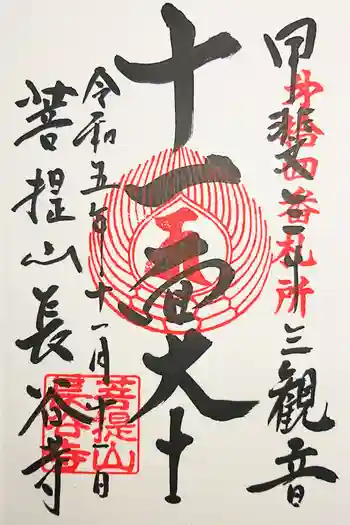 甲斐卅三観音
第拾四番札所
十一面大士
令和五年十一月十一日
菩提山長谷寺
菩提山
長谷寺